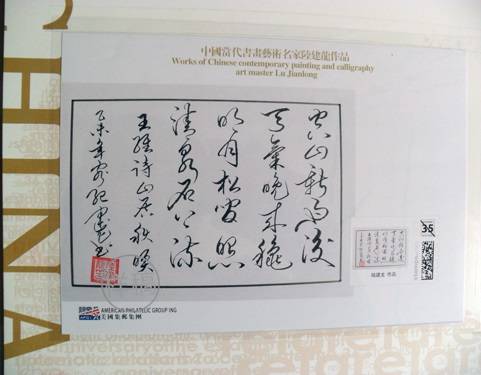 CHINA
中國當代書畫藝術名家陸建龍作品
Works of Chinese contemporary painting and calligraphy
art master Lu Jianlong
空山新雨後
天氣晚來穐
明月松間照
清泉石上流
王維詩山居秋暝
乙未年
35
作品
AMERICAN PHILATELIC GROUP ING
美國集郵集團